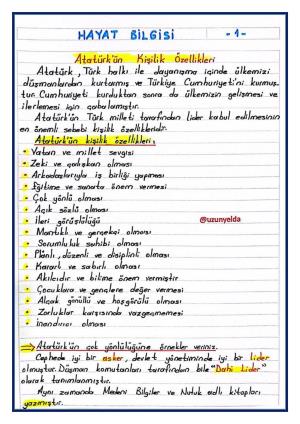 HAYAT BİLGİSİ -1-
Atatürk'ün Kişilik Özellikleri
Atatürk, Türk halkı ile dayanışma içinde ülkemizi
düşmanlardan kurtarmış ve Türkiye Cumhuriyeti'ni kurmuş
tur. Cumhuriyeti kurduktan sonra da ülkemizin gelişmesi ve
ilerlemesi için çabalamıştır.
Atatürk'ün Türk milleti tarafından lider kabul edilmesinin
en önemli sebebi kişilik özellikleridir.
Atatürk'ün kişilik özellikleri;
• Vatan ve millet sevgisi
• Zeki ve çalışkan olması
• Arkadaşlarıyla iş birliği yapması
• Eğitime ve sanata önem vermesi
• Çok yönlü olması
• Açık sözlü olması
• İleri görüşlülüğü
@uzunyelda
• Mantıklı ve gerçekçi olması
• Sorumluluk sahibi olması
• Planlı, düzenli ve disiplinli olması
• Kararlı ve sabırlı olması
• Akılcıdır ve bilime önem vermiştir
• Çocuklara ve gençlere değer vermesi
• Alçak gönüllü ve hoşgörülü olması
• Zorluklar karşısında vazgeçmemesi
• İnandırıcı olması
⇒ Atatürk'ün çok yönlülüğüne örnekler veriniz.
Cephede iyi bir asker, devlet yönetiminde iyi bir lider
olmuştur. Düşman komutanları tarafından bile "Dahi Lider"
olarak tanımlanmıştır.
Aynı zamanda Medeni Bilgiler ve Nutuk adlı kitapları
yazmıştır.